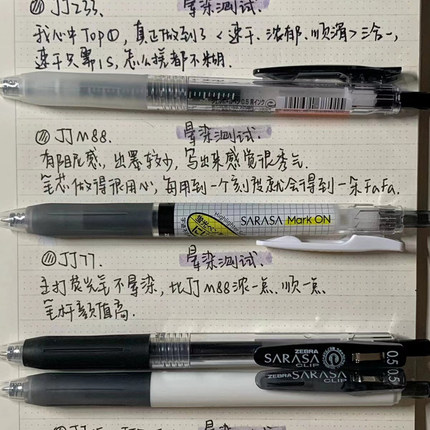 JJZ33. 晕染测试.
我心中Top①,真正做到了<速干.浓郁.顺滑>三合一,
速干只需1S,怎么搓都不糊.
JJM88. 晕染测试.
有阻尼感,出墨较少,写出来感觉很秀气
笔芯做得很用心,每用到一个刻度就会得到一朵FaFa.
SARASA Mark ON
JJ77. 晕染测试.
主打荧光笔不晕染,比JJM88浓一点、顺一点、
笔杆颜值高.
ZEBRA
SARASA CLIP 0.5
ZEBRA
SARASA CLIP 0.5